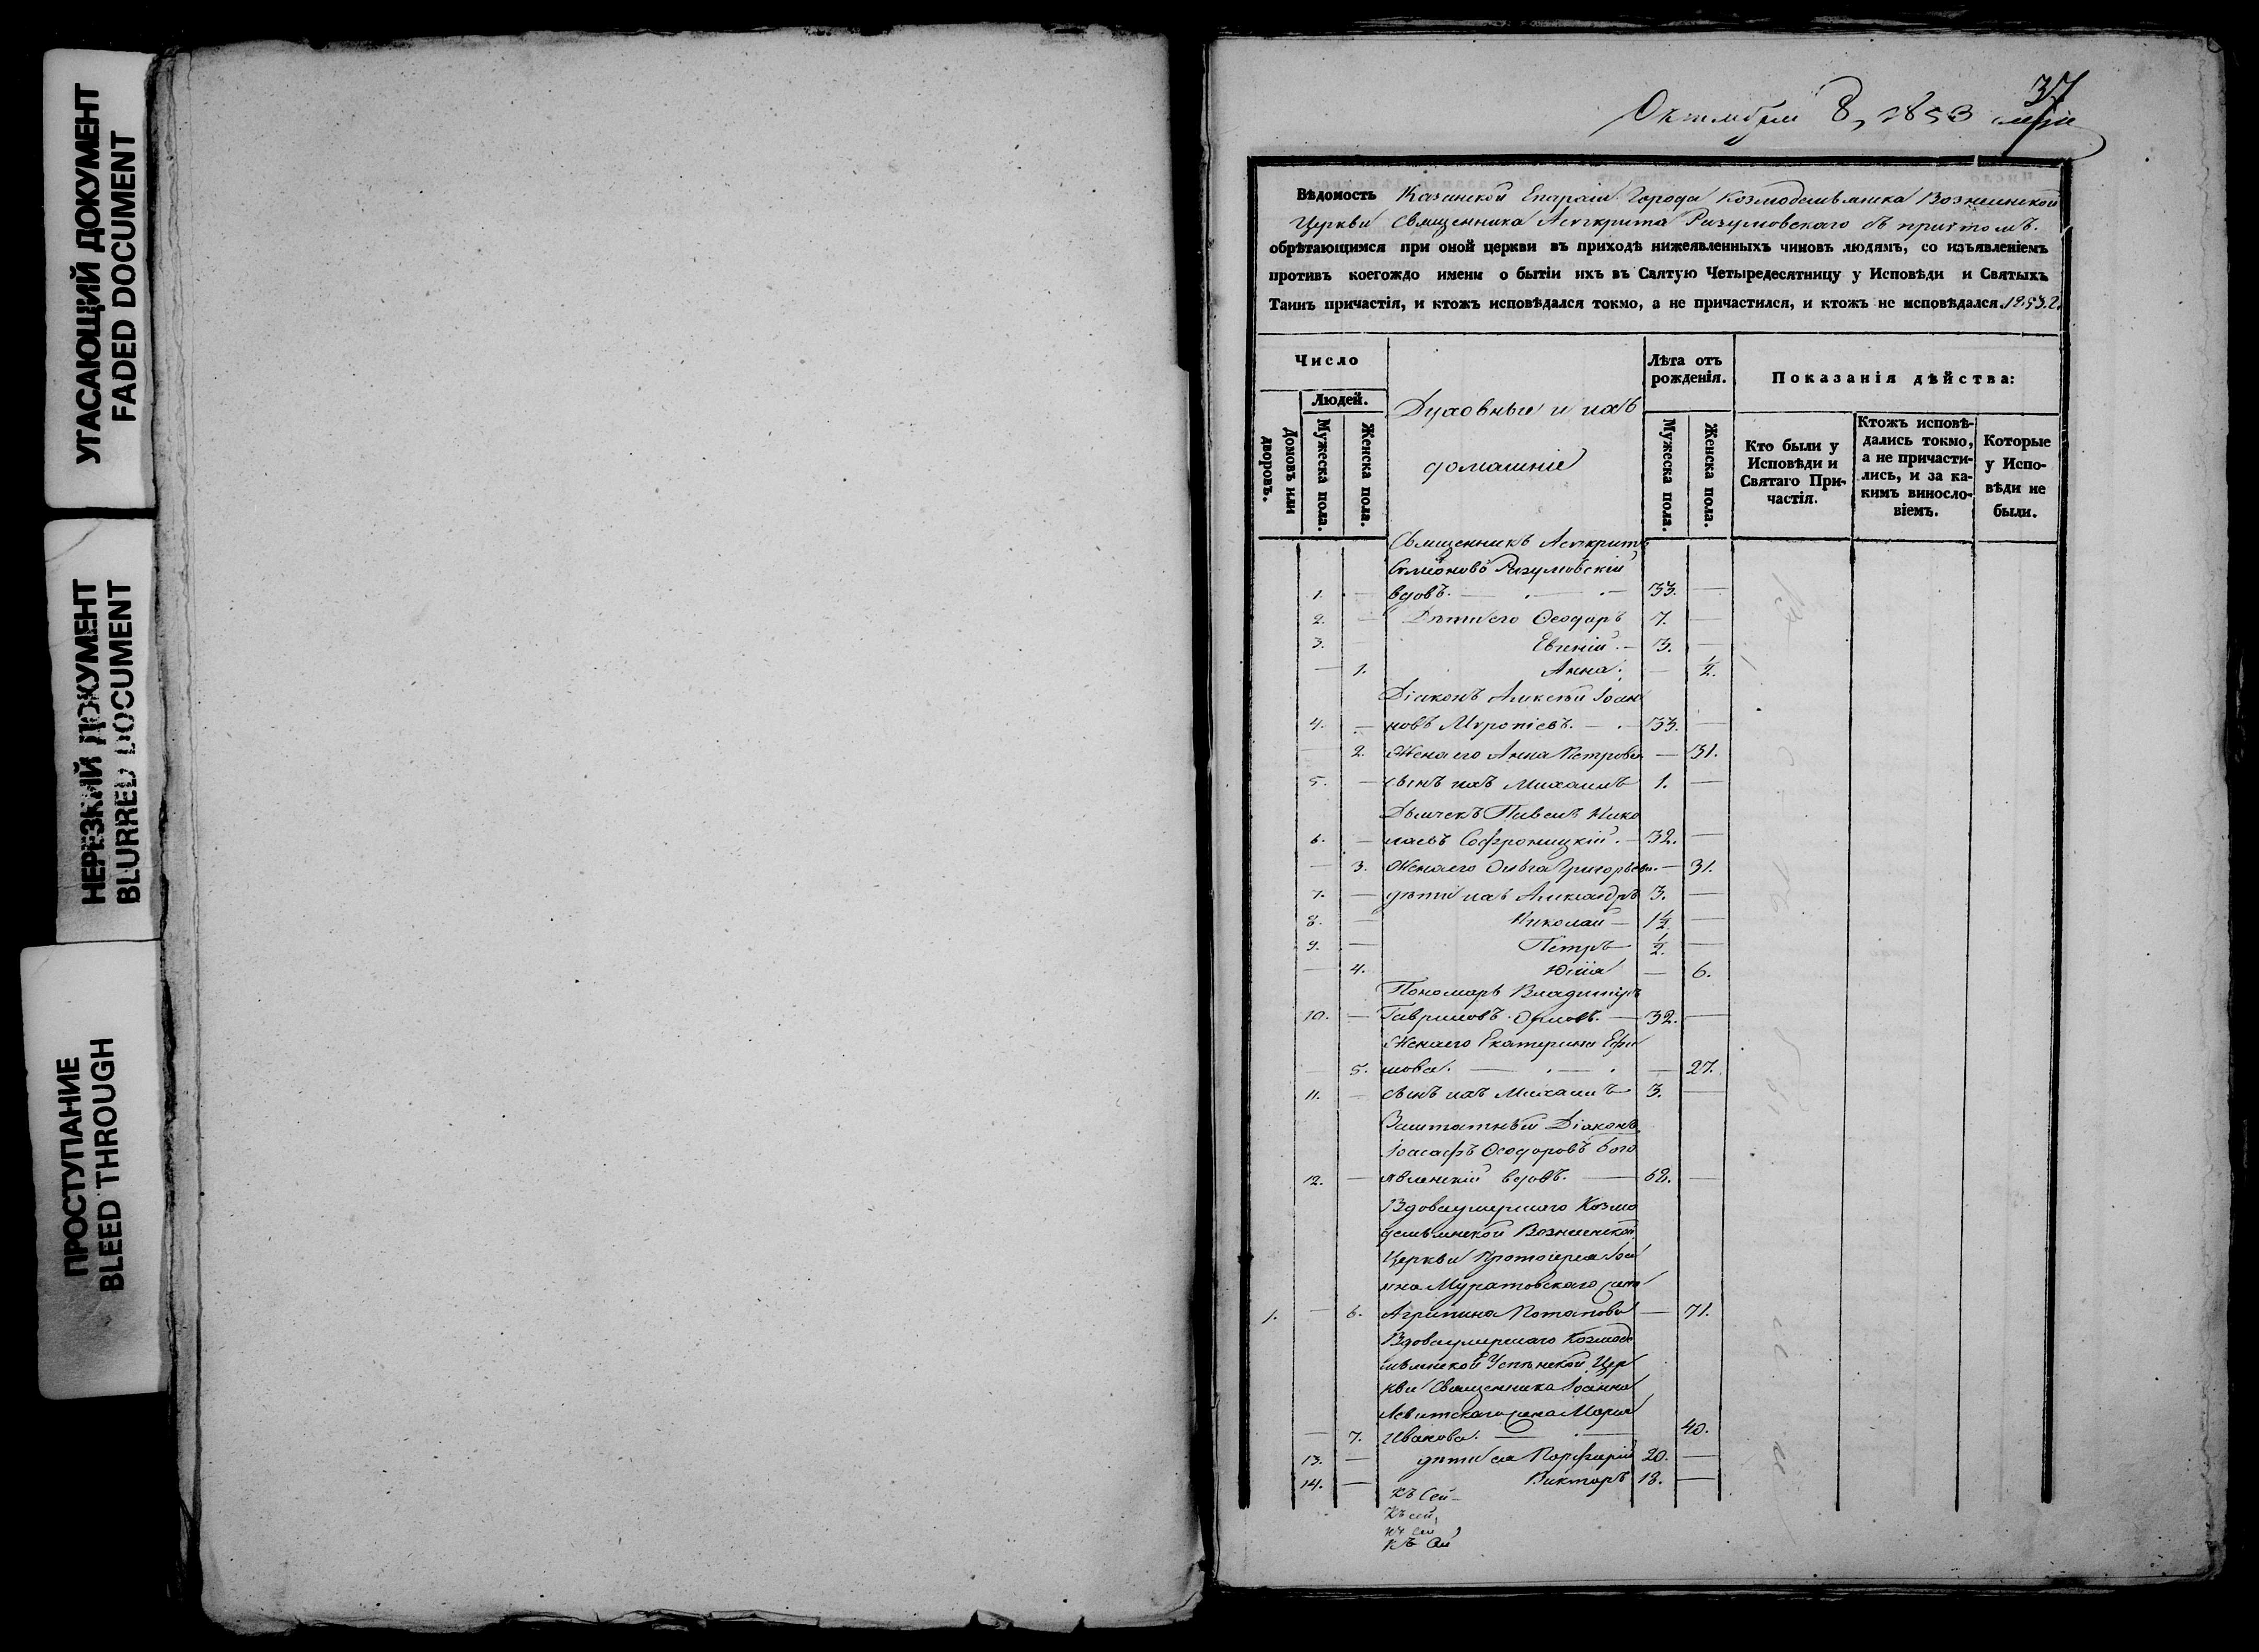 УГАСАЮЩИЙ ДОКУМЕНТ
FADED DOCUMENT
НЕРЕЗКИЙ ДОКУМЕНТ
BLURRED DOCUMENT
ПРОСТУПАНИЕ
BLEED THROUGH
37
Октября 8, 1853
Вѣдомость Казанской Епархіи Города Козмодемьянска Вознесенской
Церкви Священника Асигкрита Разумовскаго съ причтомъ.
обрѣтающимся при оной церкви въ приходѣ нижеявленныхъ чиновъ людямъ, со изъявленіемъ
противъ коегождо имени о бытіи ихъ въ Святую Четыредесятницу у Исповѣди и Святыхъ
Таинъ причастія, и ктожъ исповѣдался токмо, а не причастился, и ктожъ не исповѣдался. 1853.
Число
Людей.
Домовъ или дворовъ.
Мужеска пола.
Женска пола.
Духовные и ихъ
домашніе
Лѣта отъ рожденія.
Мужеска пола.
Женска пола.
Показанія дѣйства:
Кто были у Исповѣди и Святаго Причастія.
Ктожъ исповѣдались токмо, а не причастились, и за какимъ винословіемъ.
Которые у Исповѣди не были.
Священникъ Асигкритъ
Симеоновъ Разумовскій
1. — вдовъ. — 33. —
2. — Дѣти его Ѳеодоръ 7. —
3. — Евгеній. — 3. —
— 1. Анна. — 1/2.
Діаконъ Алексѣй Іоан
4. — новъ Мѵропіевъ. — 33. —
— 2. Жена его Анна Петрова — 31.
5. — сынъ ихъ Михаилъ 1. —
Дьячекъ Павелъ Нико
6. — лаевъ Софроницкій. — 32. —
— 3. Жена его Ольга Григорьева — 31.
7. — дѣти ихъ Александръ 3. —
8. — Николай — 1 1/2 —
9. — Петръ — 1/2. —
— 4. Юлія — 6.
Пономарь Владиміръ
10. — Гавриловъ Орловъ. — 32. —
Жена его Екатерина Ефи
— 5. мова. — 27.
11. — сынъ ихъ Михаилъ 3. —
Заштатный Діаконъ
Іоасафъ Ѳеодоровъ Бого
12. — явленскій вдовъ. — 62. —
Вдова умершаго Козмо
демьянской Вознесенской
Церкви Протоіерея Іоа
нна Муратовскаго жена
1. — 6. Агрипина Потапова — 71.
Вдова умершаго Козмоде
мьянской Успенской Цер
кви Священника Іоанна
Левитскаго жена Марія
— 7. Иванова. — 40.
13. — дѣти ея Порфирій 20. —
14. — Викторъ 18. —
Къ сей
Къ сей
Къ сей
Къ сей